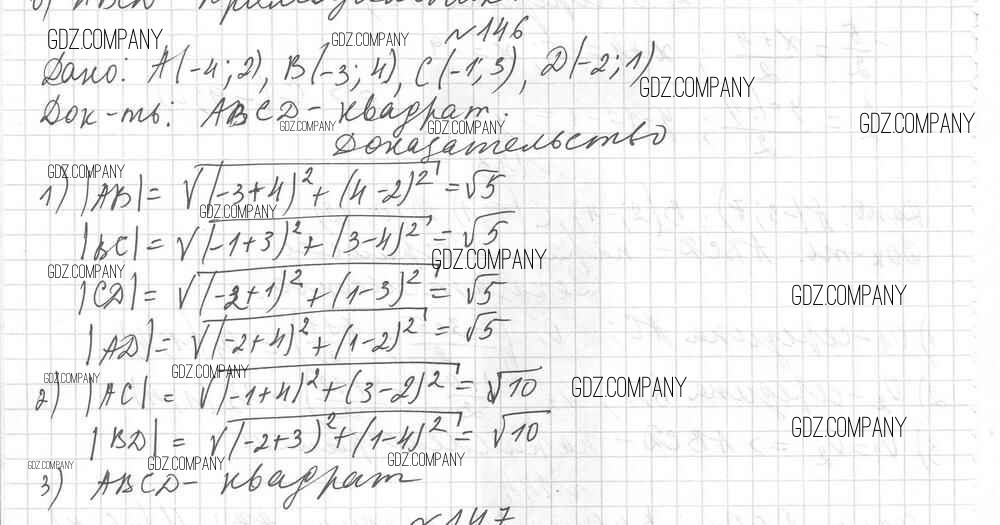 б) ABCD - прямоугольник.
№146
GDZ.COMPANY GDZ.COMPANY
Дано: A(-4; 2), B(-3; 4), C(-1; 3), D(-2; 1)
GDZ.COMPANY
Док-ть: ABCD - квадрат.
GDZ.COMPANY GDZ.COMPANY GDZ.COMPANY
Доказательство
GDZ.COMPANY
1) |AB| = √((-3+4)²+(4-2)²) = √5
GDZ.COMPANY
|BC| = √((-1+3)²+(3-4)²) = √5
GDZ.COMPANY GDZ.COMPANY
|CD| = √((-2+1)²+(1-3)²) = √5
GDZ.COMPANY
|AD| = √((-2+4)²+(1-2)²) = √5
GDZ.COMPANY GDZ.COMPANY GDZ.COMPANY
2) |AC| = √((-1+4)²+(3-2)²) = √10
GDZ.COMPANY
|BD| = √((-2+3)²+(1-4)²) = √10
GDZ.COMPANY GDZ.COMPANY GDZ.COMPANY
3) ABCD - квадрат
№147